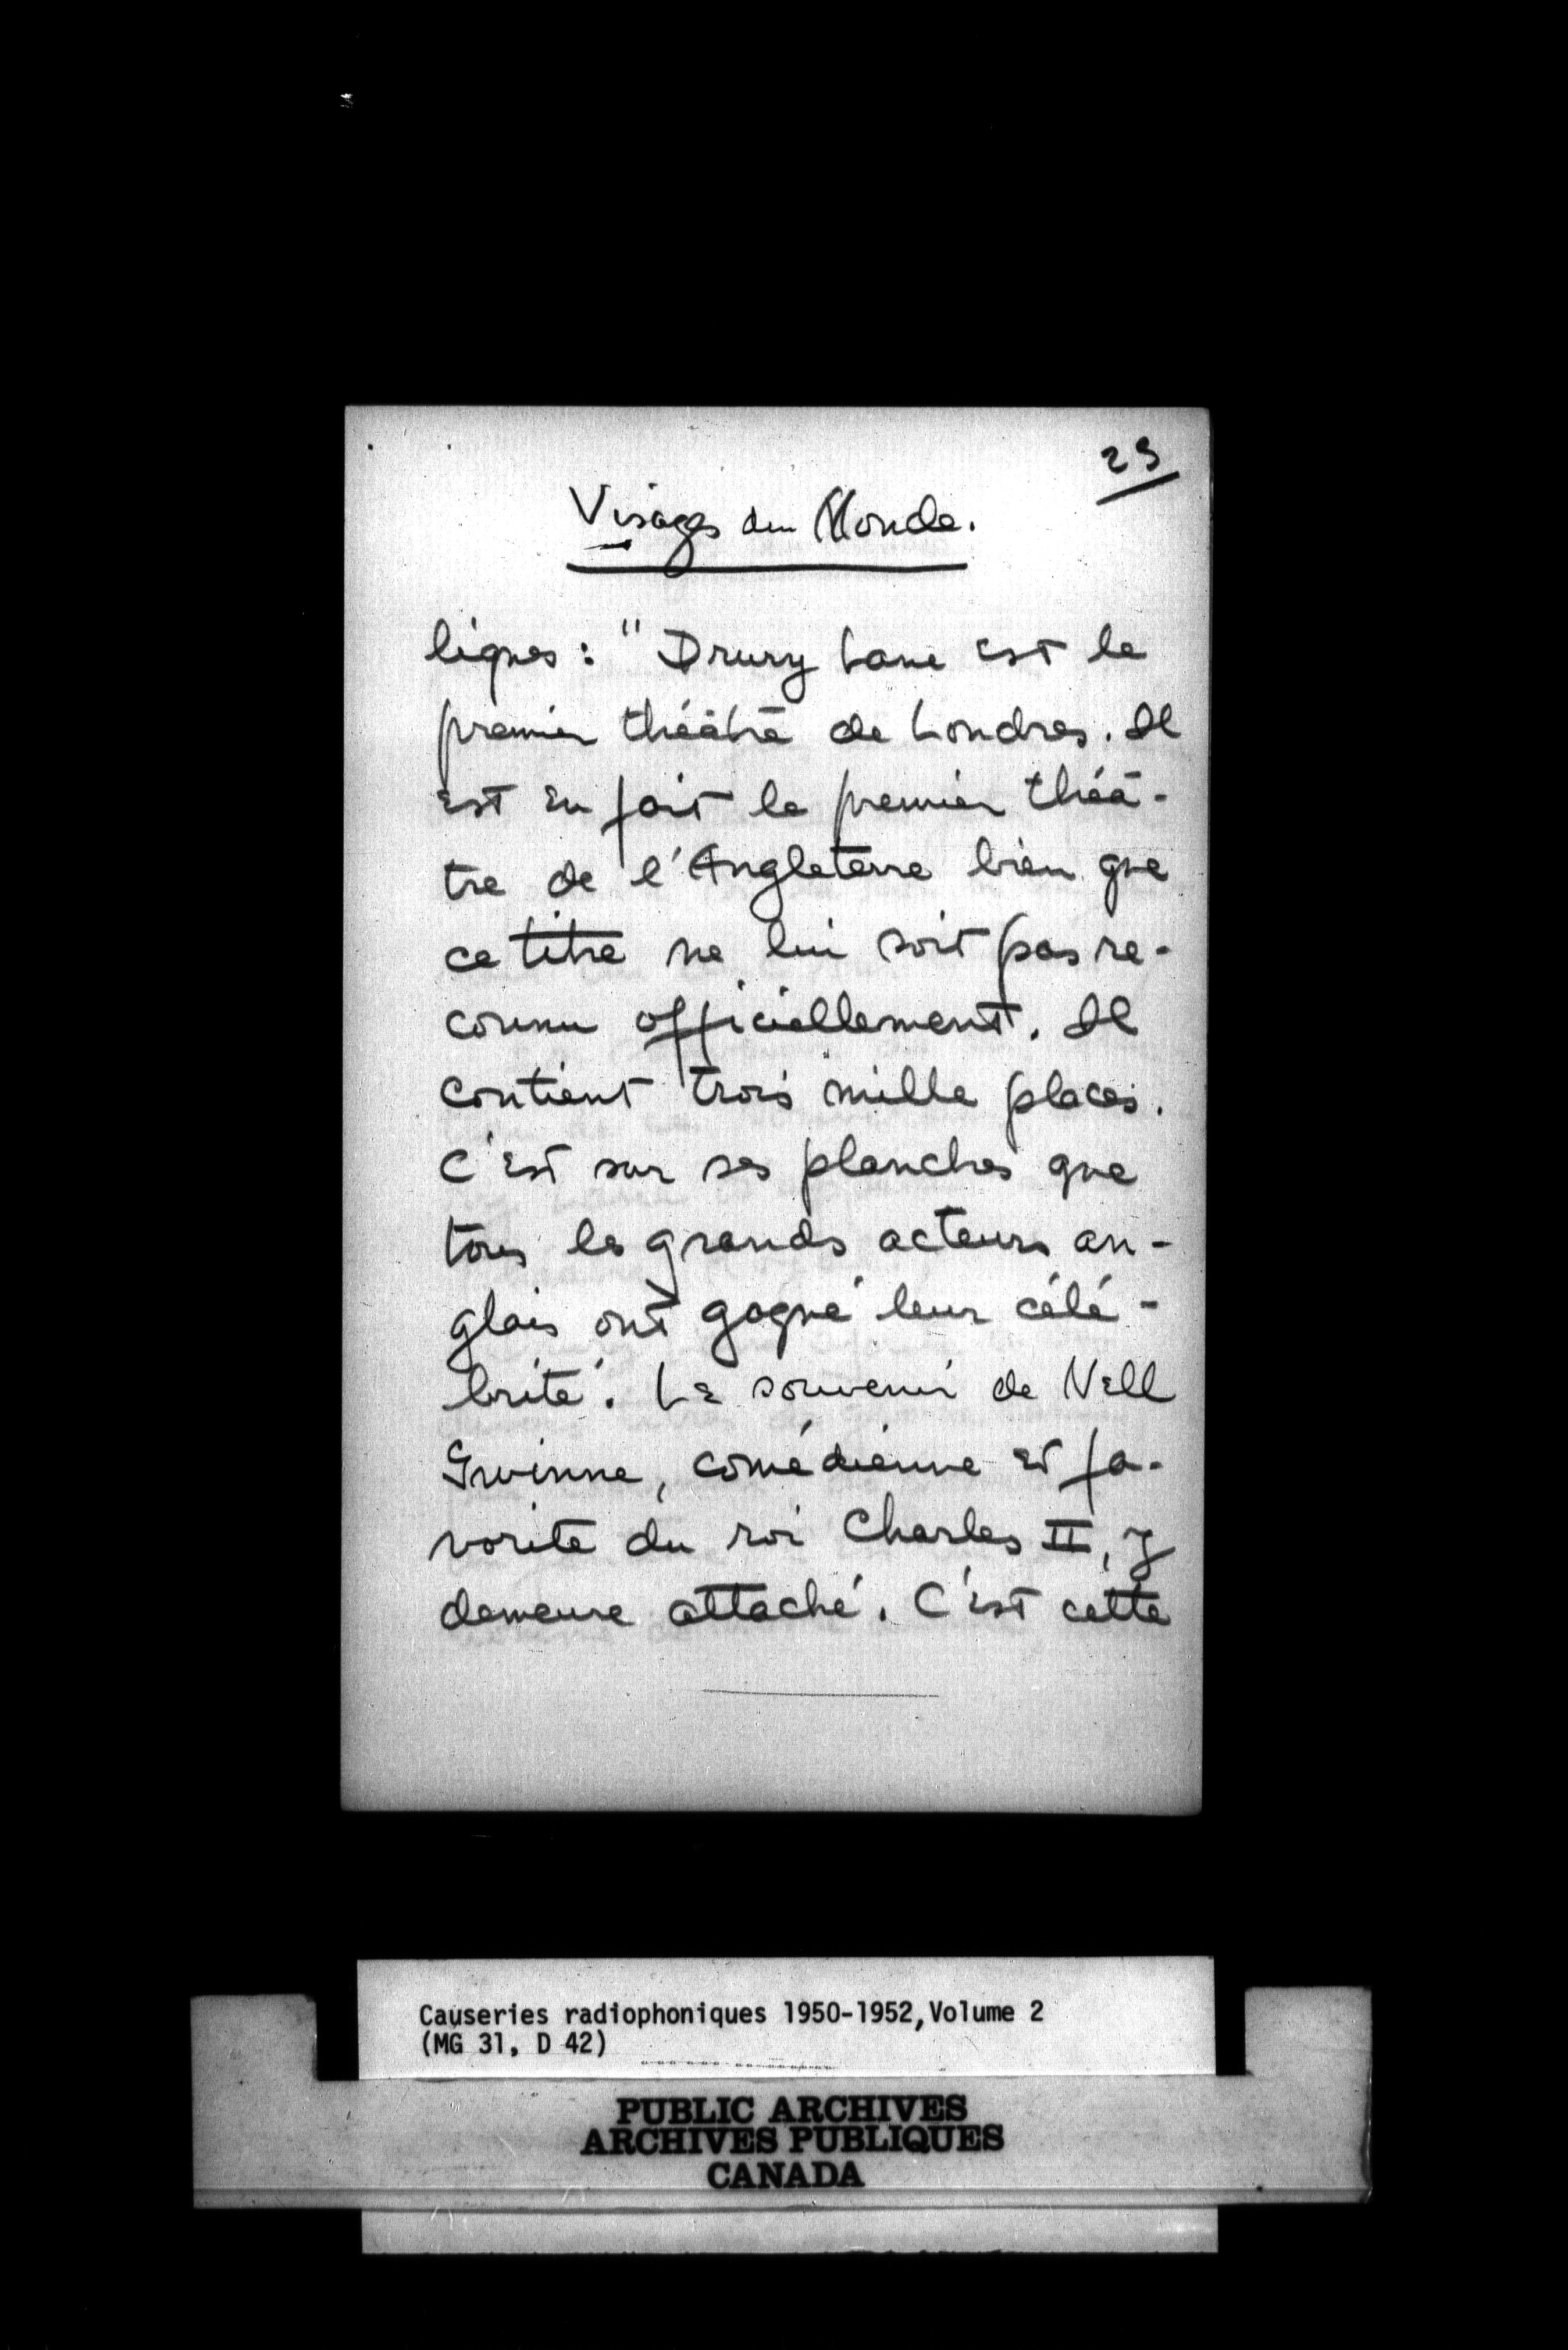 29
Visages du Monde.
lignes : " Drury Lane est le
premier théâtre de Londres. Il
est en fait le premier théâ-
tre de l'Angleterre bien que
ce titre ne lui soit pas re-
connu officiellement. Il
contient trois mille places.
C'est sur ses planches que
tous les grands acteurs an-
glais ont gagné leur célé-
brité. Le souvenir de Nell
Gwinne, comédienne et fa-
vorite du roi Charles II, y
demeure attaché. C'est cette
Causeries radiophoniques 1950-1952, Volume 2
(MG 31, D 42)
PUBLIC ARCHIVES
ARCHIVES PUBLIQUES
CANADA